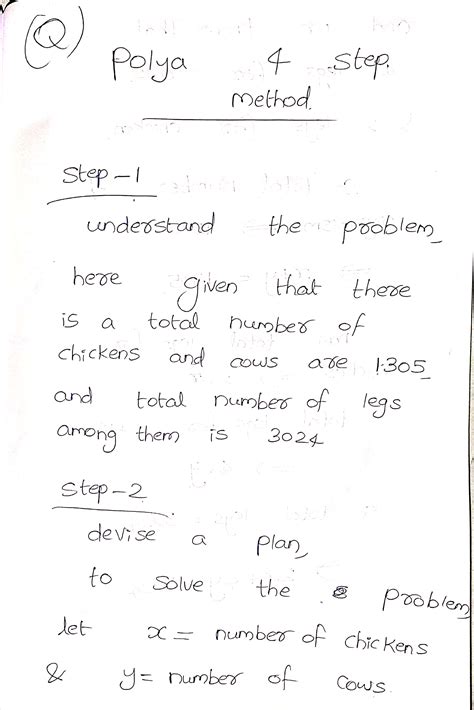 (Q)
Polya 4 Step.
method.
Step-1
understand the problem
here given that there
is a total number of
chickens and cows are 1305
and total number of legs
among them is 3024
Step-2
devise a plan,
to solve the problem
let x = number of chickens
& y = number of cows.